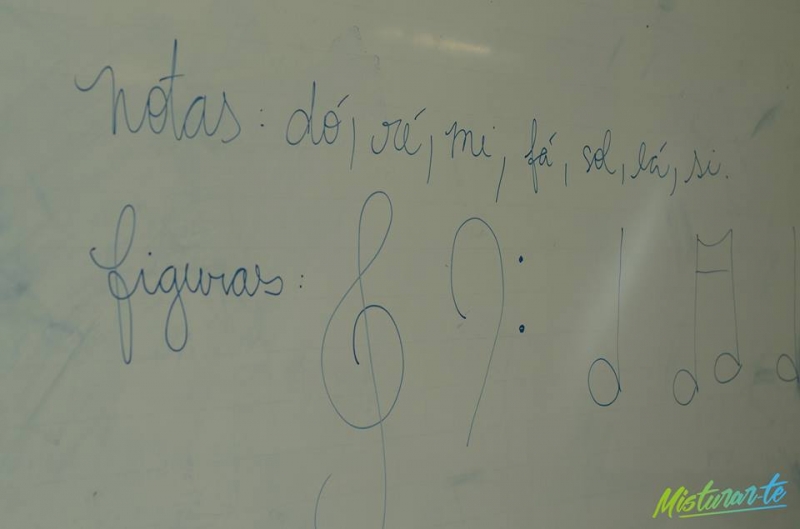 Notas: dó, ré, mi, fá, sol, lá, si.
figuras:
Misturar-te